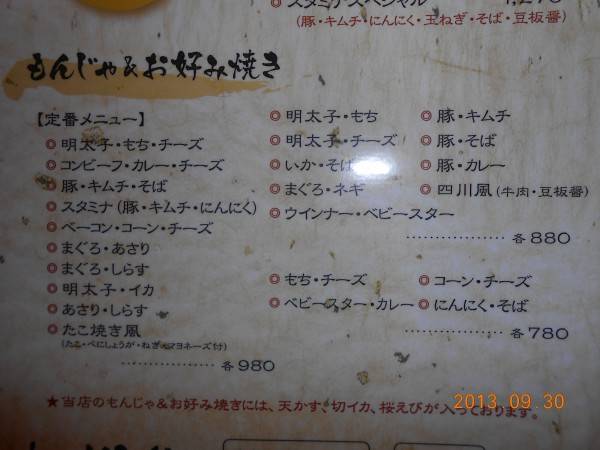 スタミナスペシャル
(豚・キムチ・にんにく・玉ねぎ・そば・豆板醤)
もんじゃ&お好み焼き
【定番メニュー】
◎ 明太子・もち・チーズ
◎ コンビーフ・カレー・チーズ
◎ 豚・キムチ・そば
◎ スタミナ(豚・キムチ・にんにく)
◎ ベーコン・コーン・チーズ
◎ まぐろ・あさり
◎ まぐろ・しらす
◎ 明太子・イカ
◎ あさり・しらす
◎ たこ焼き風
(たこ・べにしょうが・ねぎ・マヨネーズ付)
各980
◎ 明太子・もち
◎ 明太子・チーズ
◎ いか・そば
◎ まぐろ・ネギ
◎ ウインナー・ベビースター
◎ 豚・キムチ
◎ 豚・そば
◎ 豚・カレー
◎ 四川風(牛肉・豆板醤)
各880
◎ もち・チーズ
◎ ベビースター・カレー
◎ コーン・チーズ
◎ にんにく・そば
各780
★当店のもんじゃ&お好み焼きには、天かす、切イカ、桜えびが入っております。
2013.09.30